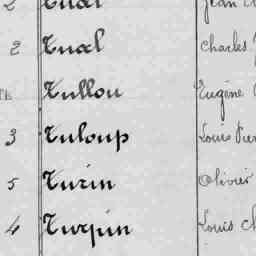 2 Tual Jean
2 Tual Charles
Tullou Eugène
3 Tuloup Louis
5 Turin Olivier
4 Turpin Louis Ch